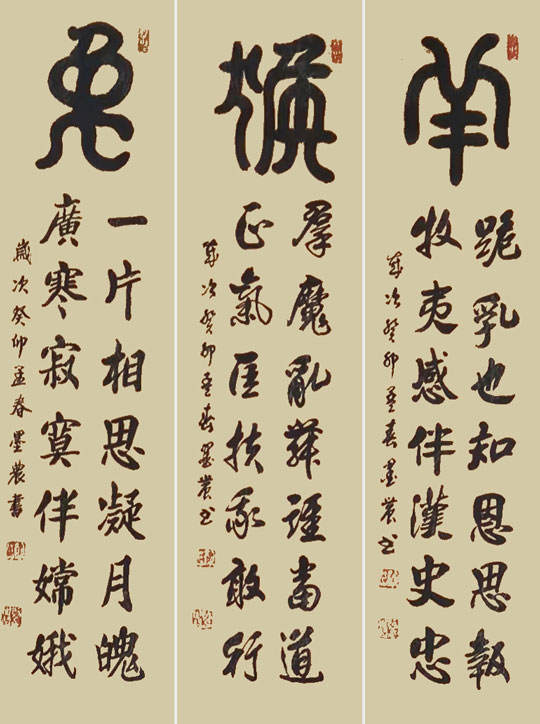 羊
跪乳也知恩思報
牧夷感伴漢史忠
歲次癸卯孟春墨農書
猴
羣魔亂舞當道
正氣匡扶我敢行
歲次癸卯孟春墨農書
兔
一片相思凝月魄
廣寒寂寞伴嫦娥
歲次癸卯孟春墨農書